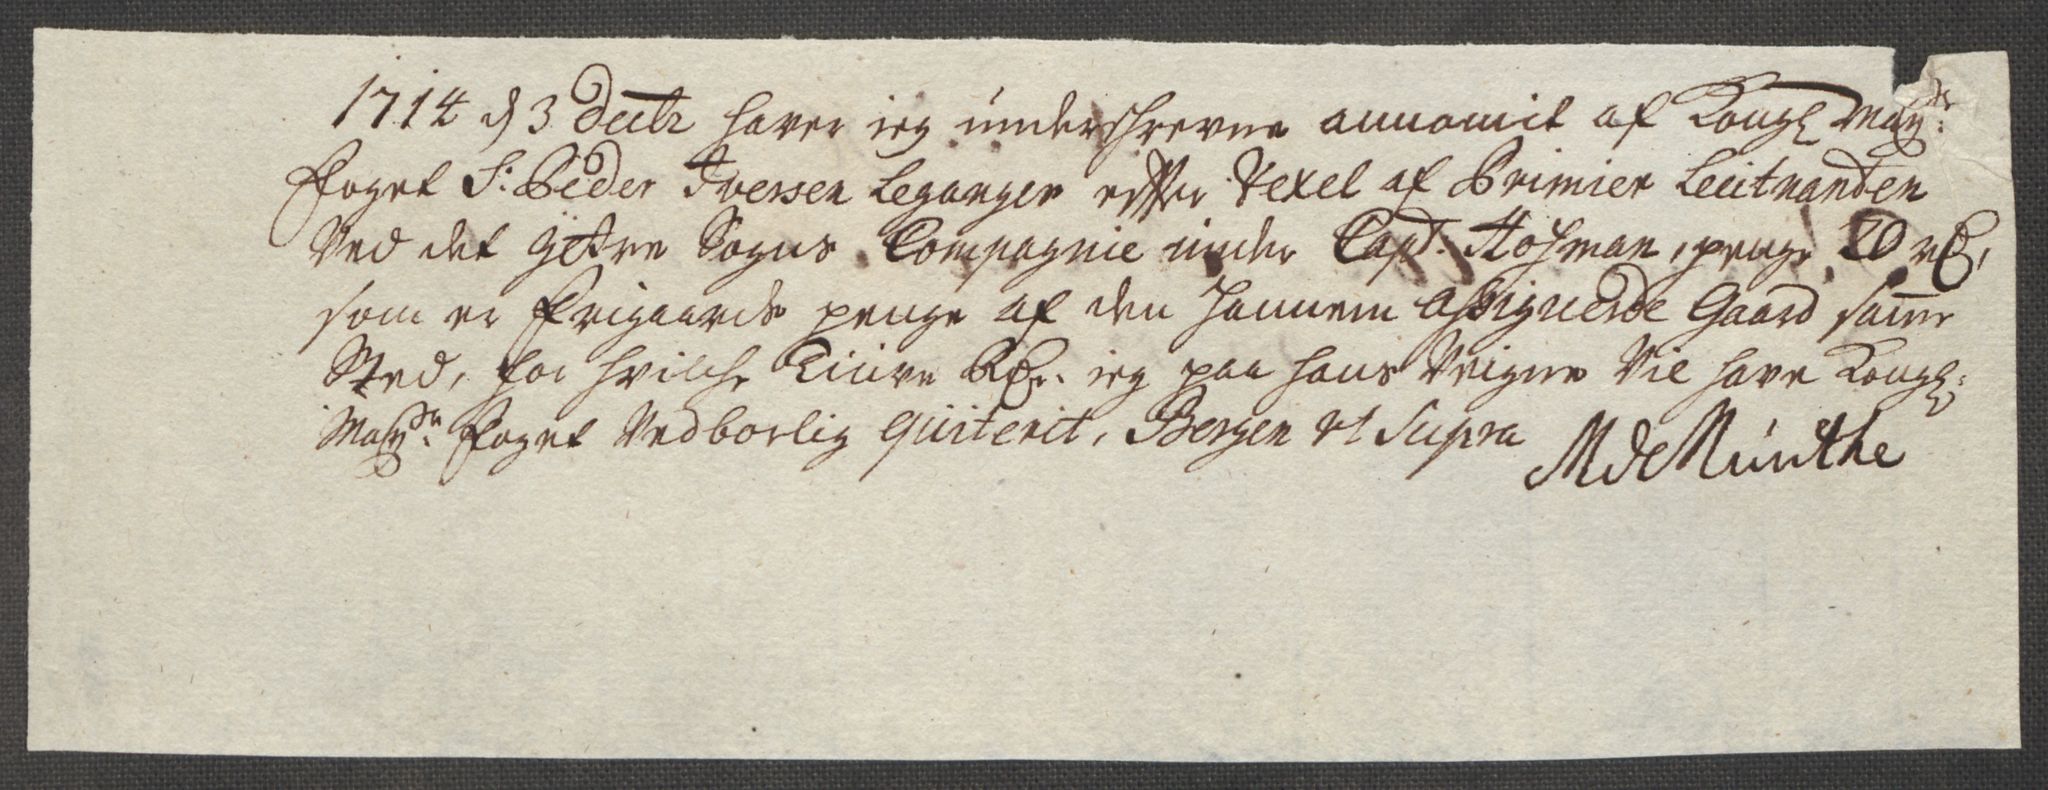 1714 d 3 Decbr haver ieg underschrevne annamit af Kongl May:ts
Foget Sr: Peder Iversen Leganger efter Vexel af Primier Leutnanden
Ved det Ÿttre Sogns Compagnie under Capt. Hofman, penge 20 rd,
som er Frigaards penge af den hannem assignerde Gaard samme
Sted, for hvilche Tiuve Rdr. ieg paa hans Veigne Vil have Kongl:
May:ts Foget Vedborlig quiterit, Bergen ut Supra
MdeMunthe